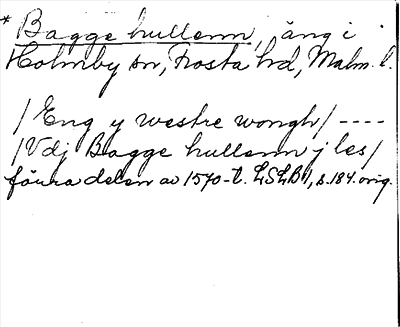 * Bagge hullenn, äng i
Holmby sn, Frosta hd, Malm. l.
/Eng y westre wongh/ ----
/Vdj Bagge hullenn j les/
före delen av 1570-t. LSLB 1, s. 184. orig.